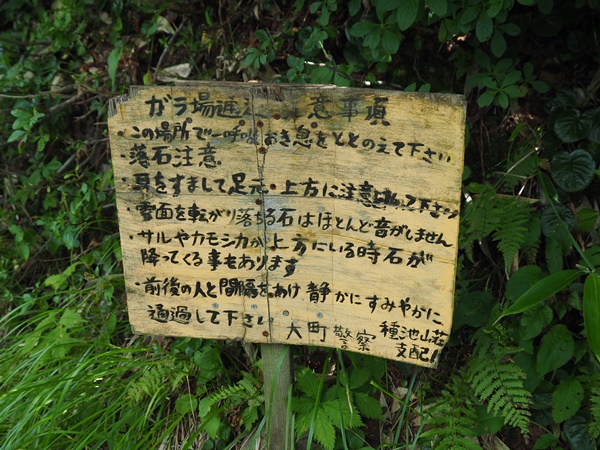 ガラ場通過注意事項
・この場所で一呼吸おき息をととのえて下さい
・落石注意
・耳をすまして足元・上方に注意して下さい
・雪面を転がり落ちる石はほとんど音がしません
・サルやカモシカが上方にいる時石が
降ってくる事もあります
・前後の人と間隔をあけ静かにすみやかに
通過して下さい
大町警察
種池山荘
支配人